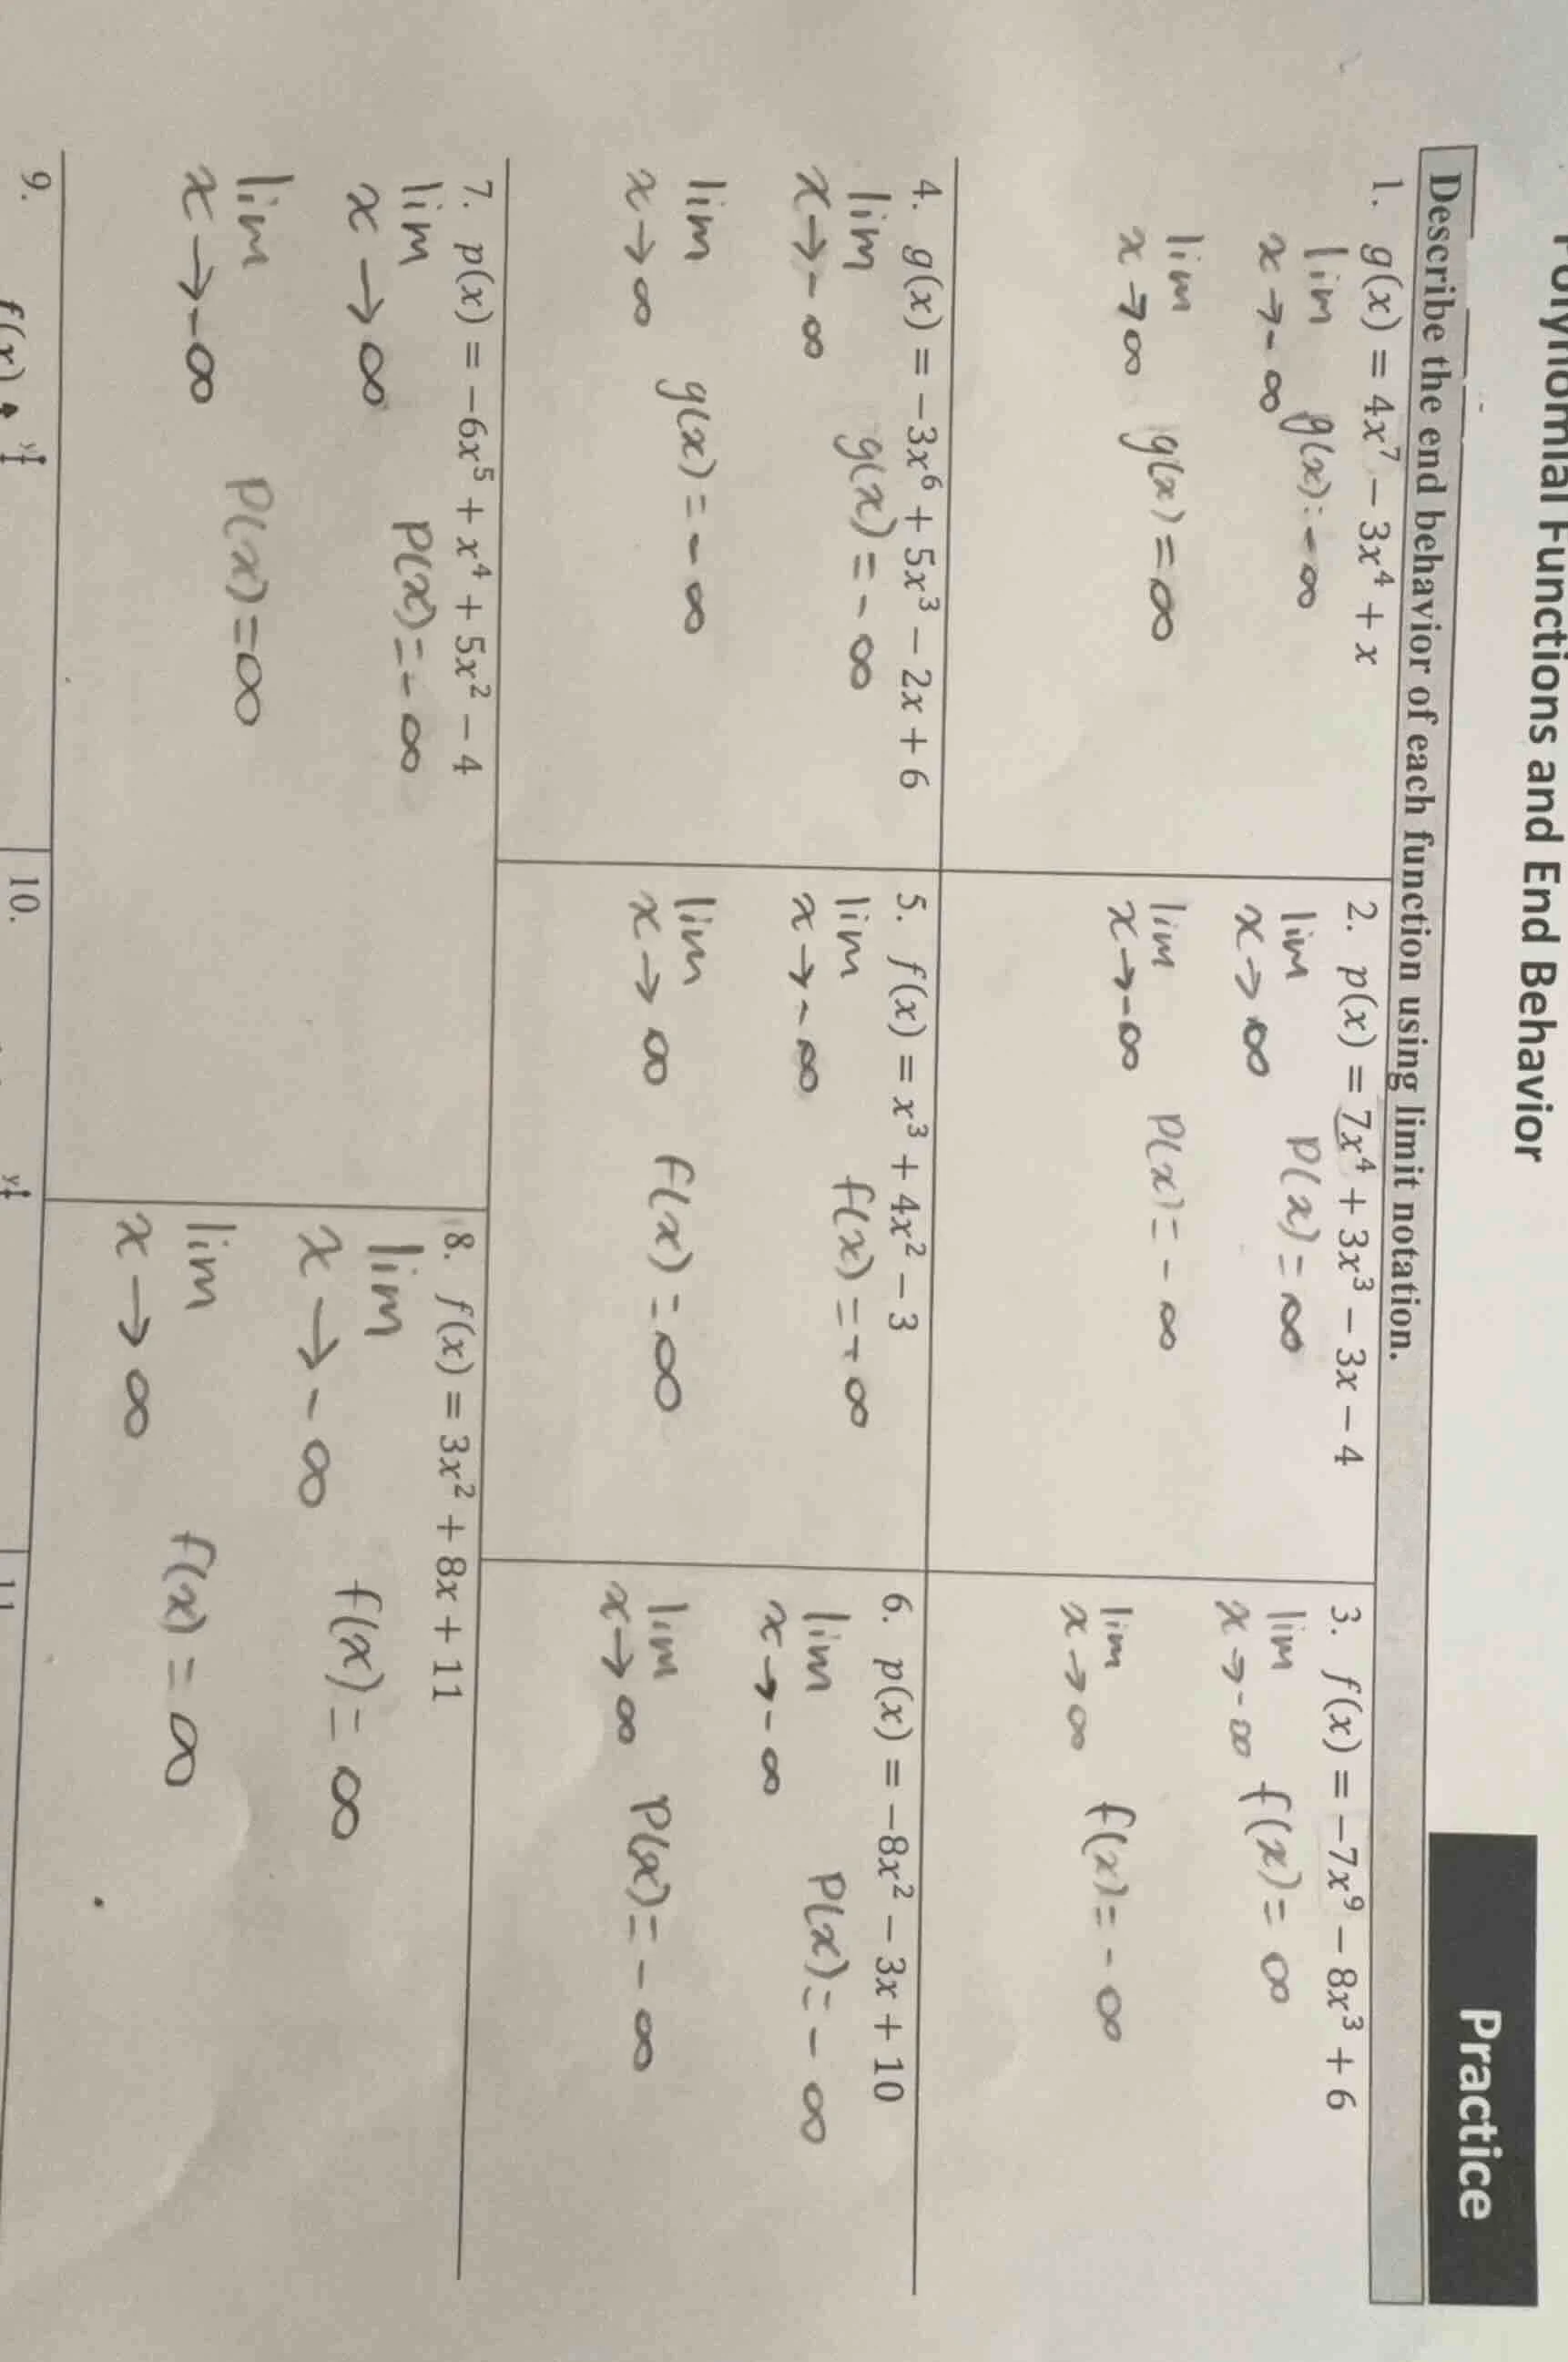 Polynomial Functions and End Behavior
Practice
Describe the end behavior of each function using limit notation.
1. g(x) = 4x⁷ − 3x⁴ + x
lim g(x) = -∞
x→-∞
lim g(x) = ∞
x→∞
2. p(x) = 7x⁴ + 3x³ − 3x − 4
lim p(x) = ∞
x→∞
lim p(x) = -∞
x→-∞
3. f(x) = −7x⁹ − 8x³ + 6
lim f(x) = ∞
x→-∞
lim f(x) = -∞
x→∞
4. g(x) = −3x⁶ + 5x³ − 2x + 6
lim g(x) = -∞
x→-∞
lim g(x) = -∞
x→∞
5. f(x) = x³ + 4x² − 3
lim f(x) = -∞
x→-∞
lim f(x) = ∞
x→∞
6. p(x) = −8x² − 3x + 10
lim p(x) = -∞
x→-∞
lim p(x) = -∞
x→∞
7. p(x) = −6x⁵ + x⁴ + 5x² − 4
lim p(x) = -∞
x→∞
lim p(x) = ∞
x→-∞
8. f(x) = 3x² + 8x + 11
lim f(x) = ∞
x→-∞
lim f(x) = ∞
x→∞
9.
f(x)
y
10.
y
11